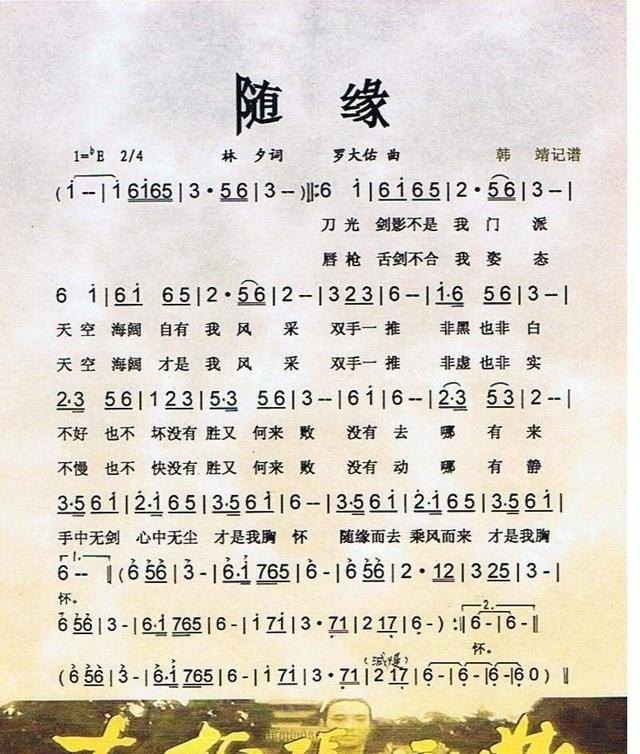 随 缘
1=ᵇE 2/4 林 夕词 罗大佑 曲 韩 靖记谱
(i -- | i 6i65 | 3 · 56 | 3 -- ) ‖: 6 i | 6i 65 | 2 · 56 | 3 -- |
刀 光 剑影不是 我 门 派
唇 枪 舌剑不合 我 姿 态
6 i | 6i 65 | 2 · 56 | 2 -- | 3 23 | 6 -- | i·6 56 | 3 -- |
天 空 海阔 自有 我 风 采 双手一 推 非黑 也非 白
天 空 海阔 才是 我 风 采 双手一 推 非虚 也非 实
2·3 56 | 1 23 | 5·3 56 | 3 -- | 6 i | 6 -- | 2·3 53 | 2 -- |
不好 也不 坏没有 胜又 何来 败 没有 去 哪 有 来
不慢 也不 快没有 胜又 何来 败 没有 动 哪 有 静
3·5 6i | 2·i 65 | 3·5 6i | 6 -- | 3·5 6i | 2·i 65 | 3·5 6i |
手中无剑 心中无尘 才是我胸 怀 随缘而去 乘风而来 才是我胸
1.
6 -- ‖ (6 56 | 3 - | 6·i 765 | 6 - | 6 56 | 2 · 12 | 3 25 | 3 - |
怀。
2.
6 56 | 3 - | 6·i 765 | 6 - | 1 71 | 3 · 71 | 2 17 | 6 - ) :‖ 6 - | 6 - ‖
怀。
(减慢)
(6 56 | 3 - | 6·i 765 | 6 - | 1 71 | 3 · 71 | 2 17 | 6 - | 6 - | 6 - | 6 0 ) ‖